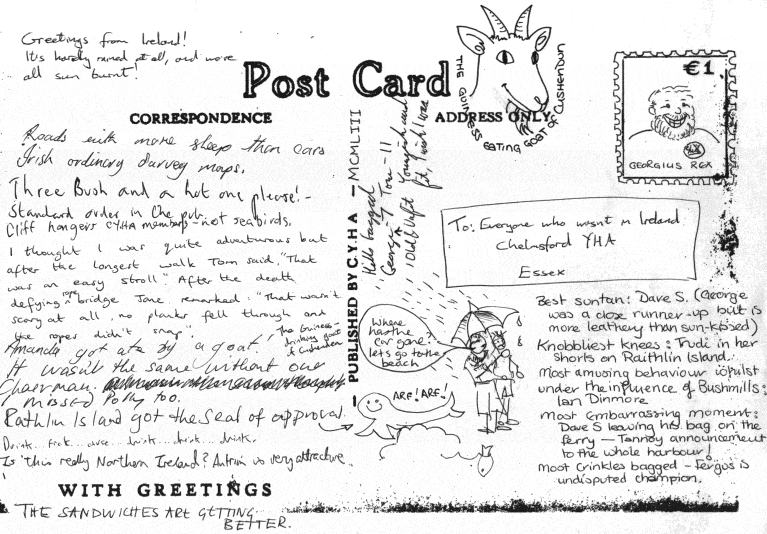 Greetings from Ireland!
It's hardly rained at all, and we're
all sun burnt!
Post Card
CORRESPONDENCE
ADDRESS ONLY
THE GUINNESS EATING GOAT OF CUSHENDUN
€1
GEORGIUS REX
Roads with more sheep than cars
Irish ordinary survey maps.
Three Bush and a hot one please! -
Standard order in the pub.
Cliff hangers CYHA members - not seabirds.
I thought I was quite adventurous but
after the longest walk Tom said, "That
was an easy stroll". After the death
defying rope bridge Jane remarked: "That wasn't
scary at all, no planks fell through and
the ropes didn't snap".
Amanda got ate by a goat,
The Guiness-
drinking goat
of Cushendun
It wasn't the same without our
Chairman.
I missed Polly too.
Rathlin Island got the Seal of approval.
Drink... drink... drink... drink.
Is this really Northern Ireland? Antrim is very attractive.
WITH GREETINGS
THE SANDWICHES ARE GETTING
BETTER.
PUBLISHED BY C.Y.H.A - MCMLIII
Tour - 11
To: Everyone who wasn't in Ireland
Chelmsford YHA
Essex
Where
has the
car gone?
let's go to the
beach
ARF! ARF!
Best suntan: Dave S. (George
was a close runner-up but is
more leathery than sun-kissed)
Knobbliest knees: Trudi in her
shorts on Raithlin Island.
Most amusing behaviour whilst
under the influence of Bushmills:
Ian Dinmore
Most embarrassing moment:
Dave S leaving his bag on the
ferry - Tannoy announcement
to the whole harbour!
Most Crinkles bagged - Fergus is
undisputed champion.